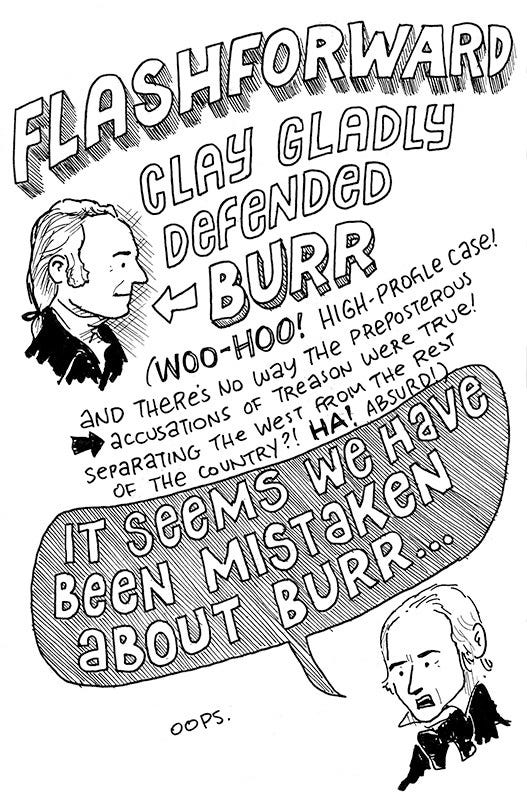 FLASHFORWARD
CLAY GLADLY
DEFENDED
BURR
(WOO-HOO! HIGH-PROFILE CASE!
AND THERE'S NO WAY THE PREPOSTEROUS
ACCUSATIONS OF TREASON WERE TRUE!
SEPARATING THE WEST FROM THE REST
OF THE COUNTRY?! HA! ABSURD!)
IT SEEMS WE HAVE
BEEN MISTAKEN
ABOUT BURR...
OOPS.